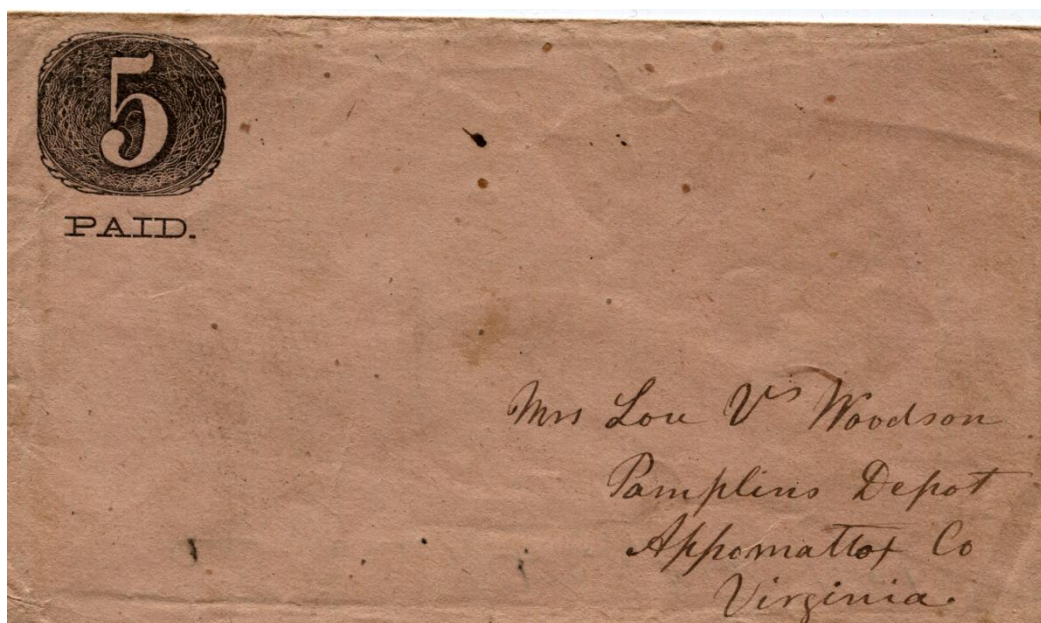 5
PAID.
Mrs Lou Vs Woodson
Pamplins Depot
Appomattox Co
Virginia.